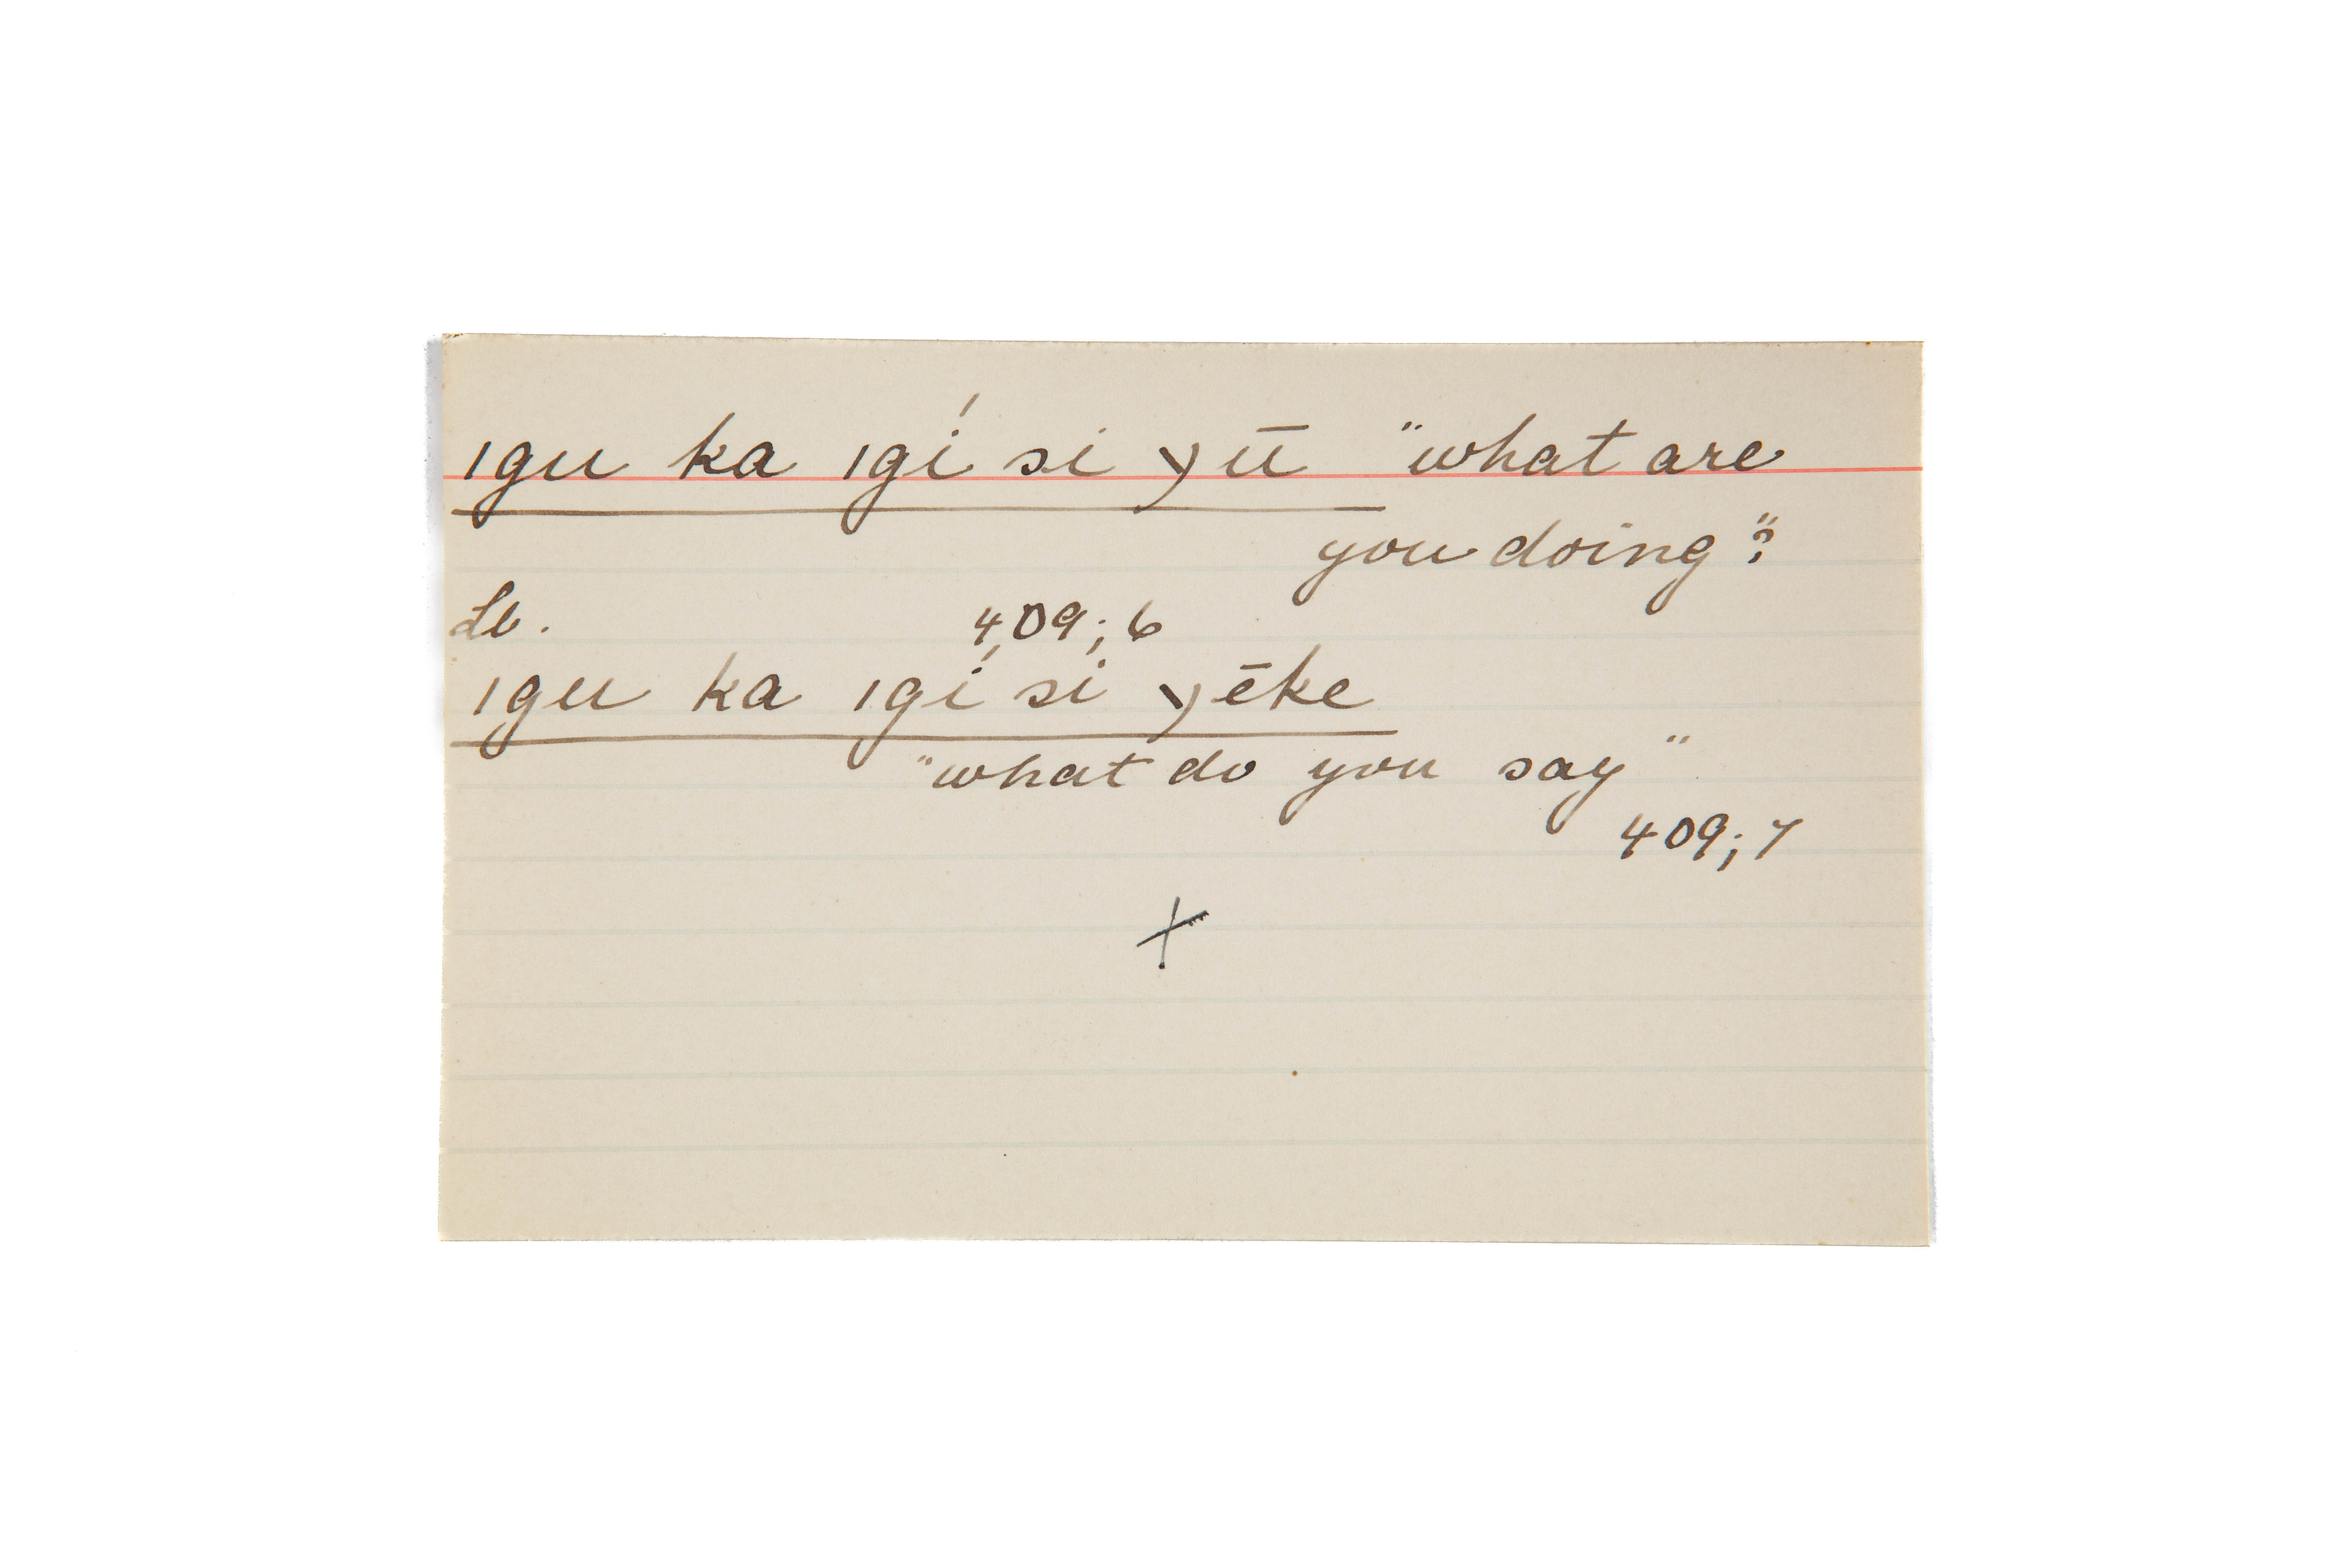 ıgu ka ıgí si yū "what are
you doing"?
Lb. 409;6
ıgu ka ıgí si yēke
"what do you say"
409;7
x